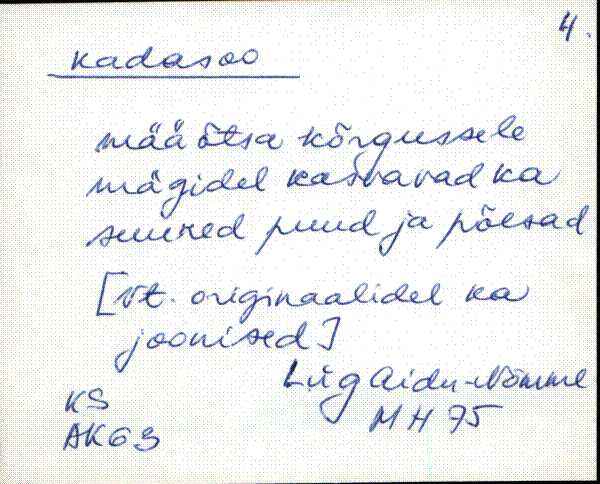 4.
kadasoo
määõtsa kõrgussele
mägidel kasvavad ka
suured puud ja põesad
[Vt. originaalidel ka
joonised]
Lüg Aidu-Nõmme
KS MH 75
AK63